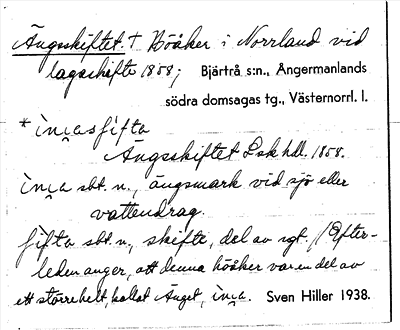 Ängsskiftet. † Höåker i Norrland vid
lagaskifte 1858; Bjärtrå s:n., Ångermanlands
södra domsagas tg., Västernorrl. l.
*
Ängsskiftet Lsk hdl. 1858.
sbt. n., ängsmark vid sjö eller
vattendrag.
sbt. n., skifte, del av ngt. // Efter-
leden anger, att denna höåker var en del av
ett större helt, kallat Änget, Sven Hiller 1938.